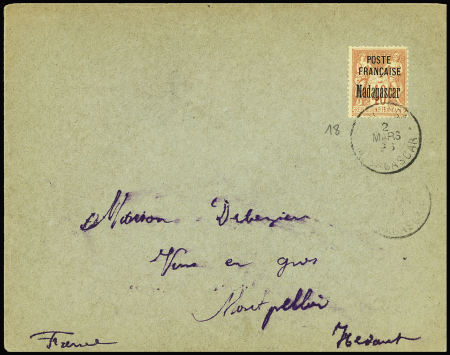 POSTE
FRANÇAISE
Madagascar
40
18
2
MARS
MADAGASCAR
Maison
Vins en gros
Montpellier
France Hérault